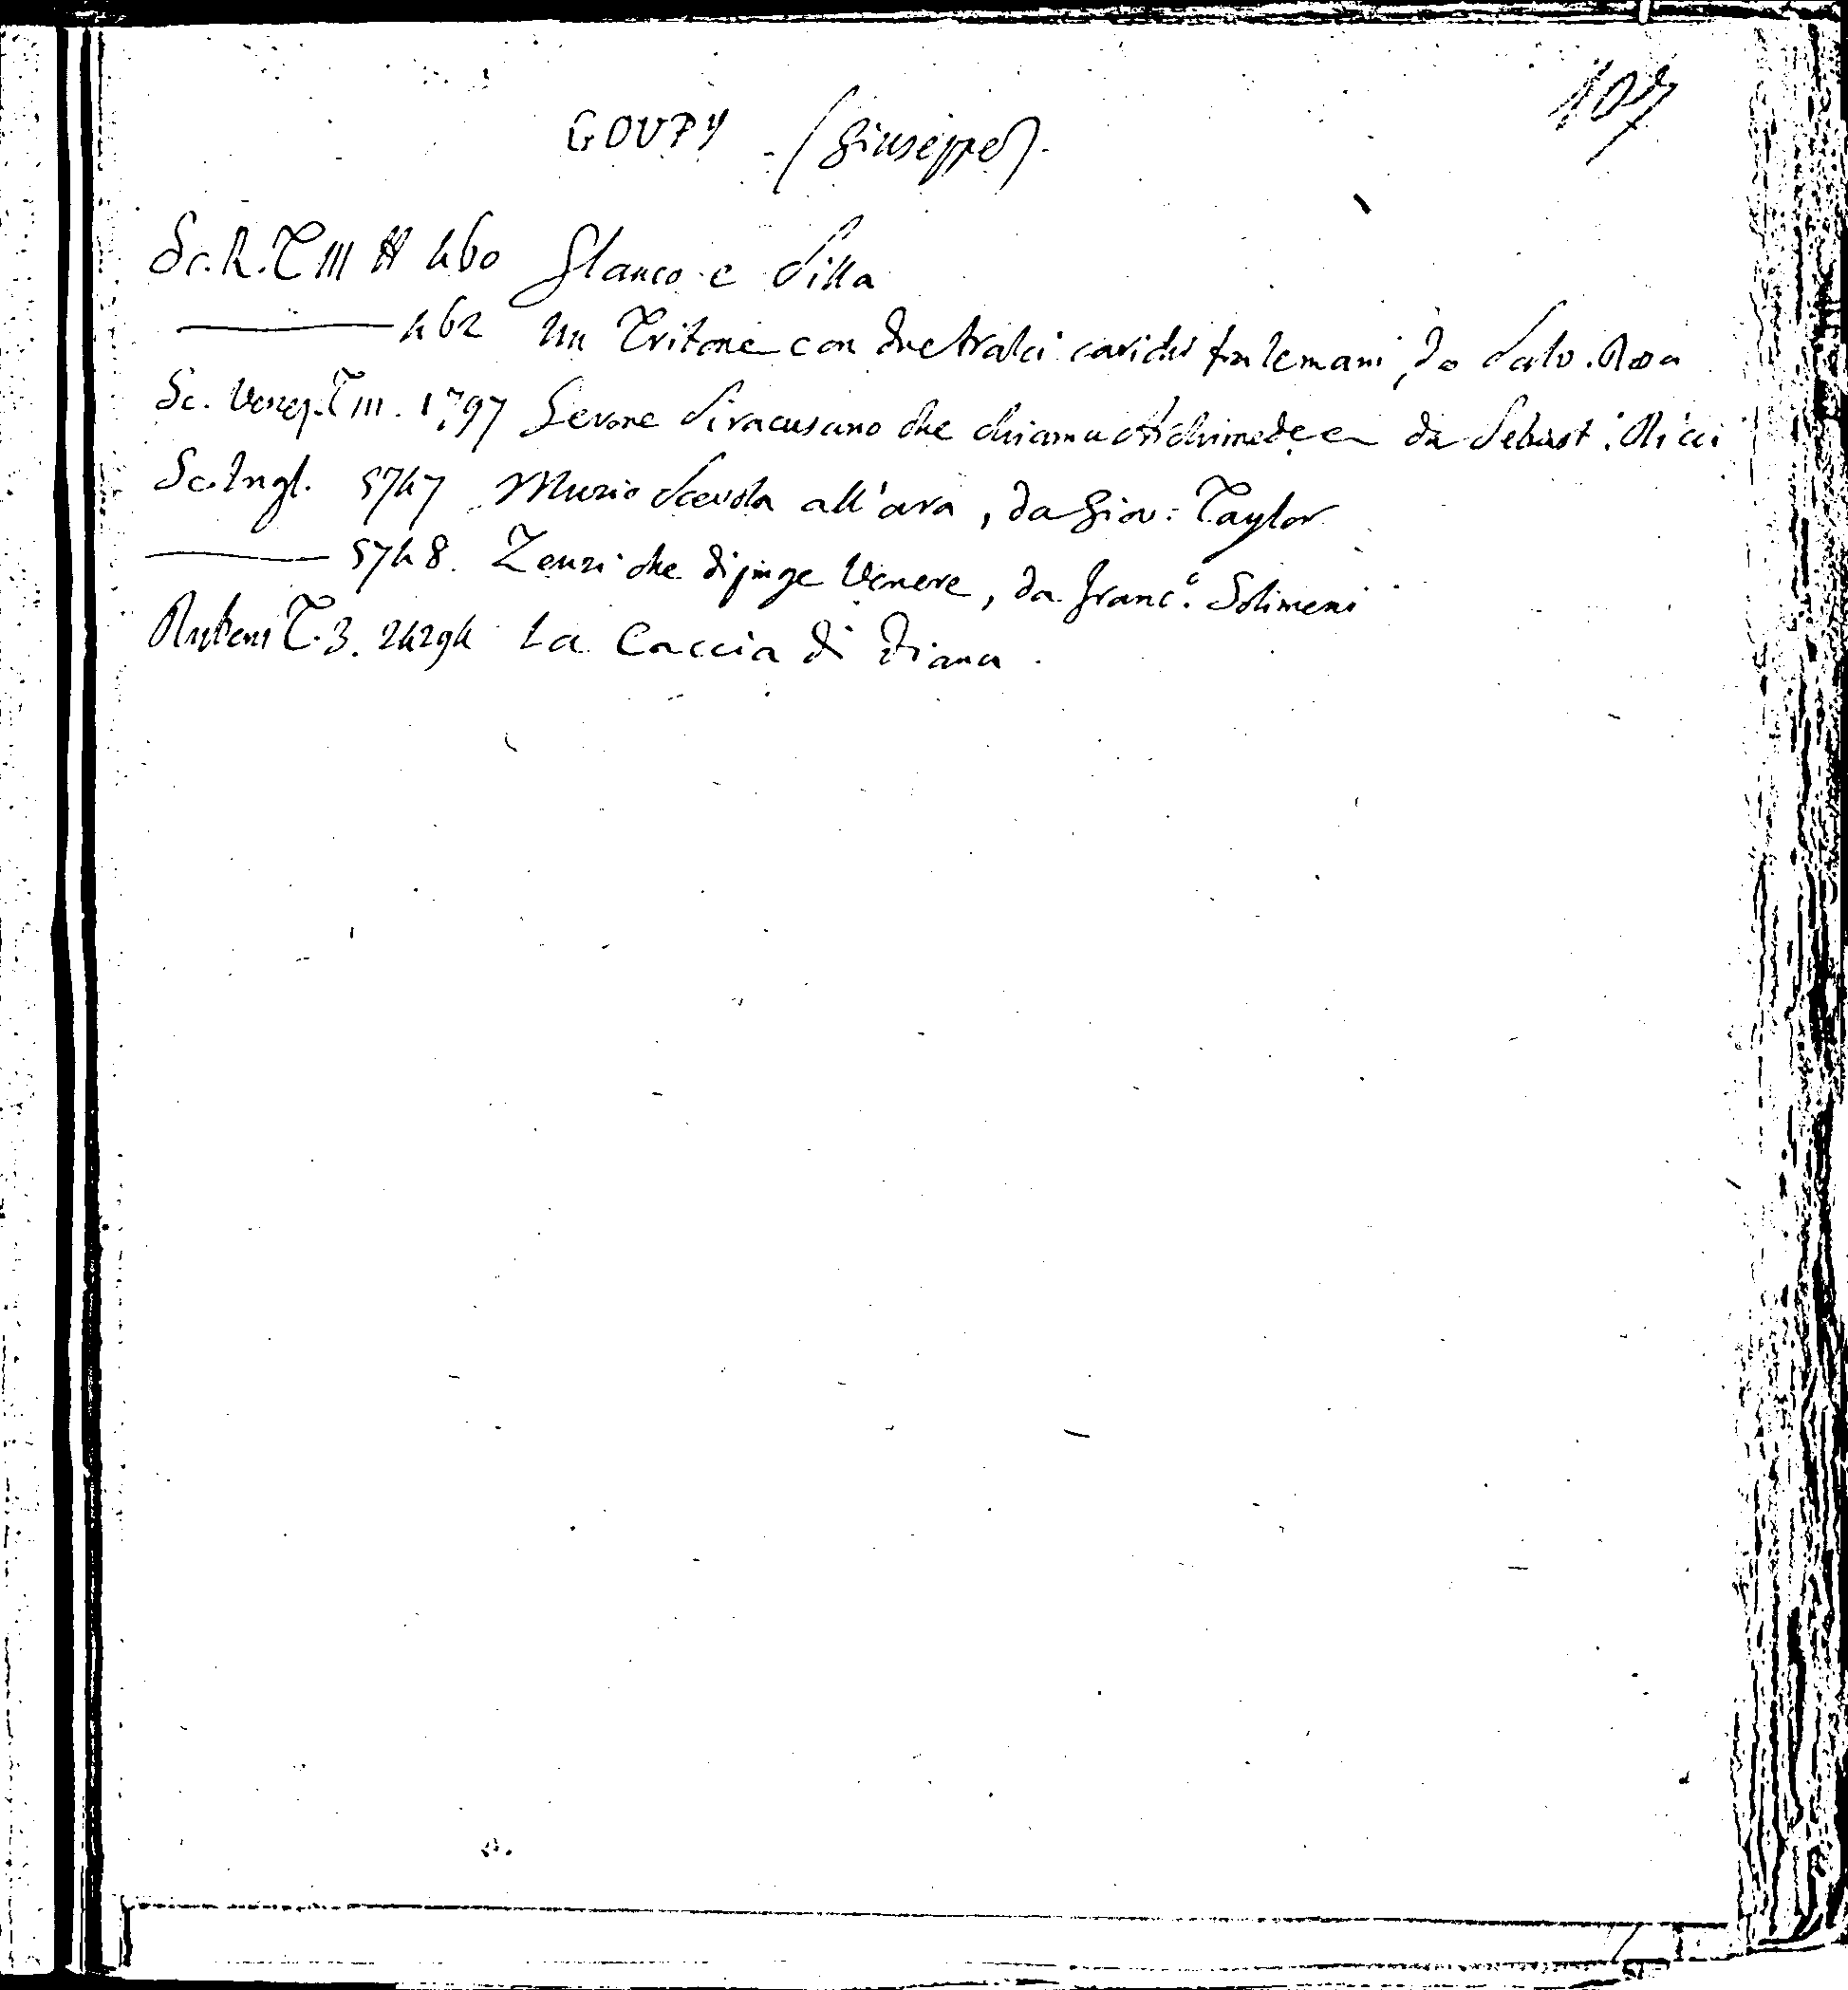 107
GOUPY - (Giuseppe).
Sc. R. T III 460 Glauco e Silla
462 un Tritone con due tralci carichi fra le mani, da Salv. Rosa
Sc. Venez. T III. 1797 Gerone Siracusano che chiama Archimede da Sebast. Ricci
Sc. Ingl. 5747 Muzio Scevola all'ara, da Giov: Taylor
5748. Zeuzi che dipinge Venere, da Franc.º Solimeni
Rubens T. 3. 24294 La Caccia di Diana.